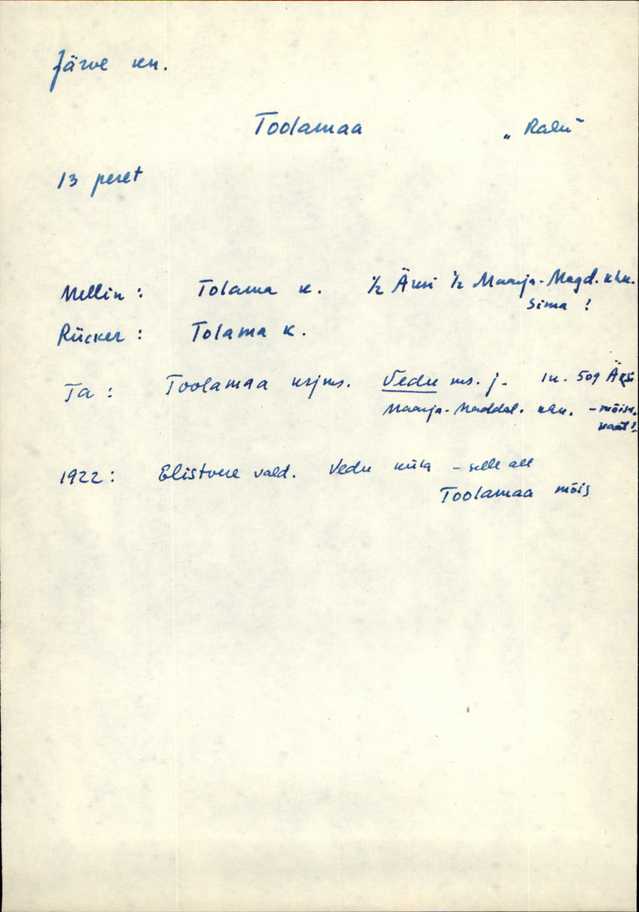 Järve kn.
Toolamaa „Ralu"
13 peret
Mellin: Tolama k. 1/2 Äksi 1/2 Maarja-Magd. khk.
Sima!
Rücker: Tolama k.
Ta: Toolamaa krjms. Vedu ms. j. lk. 509 Äksi
Maarja-Magdal. khk. - mõisa.
1922: Elistvere vald. Vedu küla - selle all
Toolamaa mõis